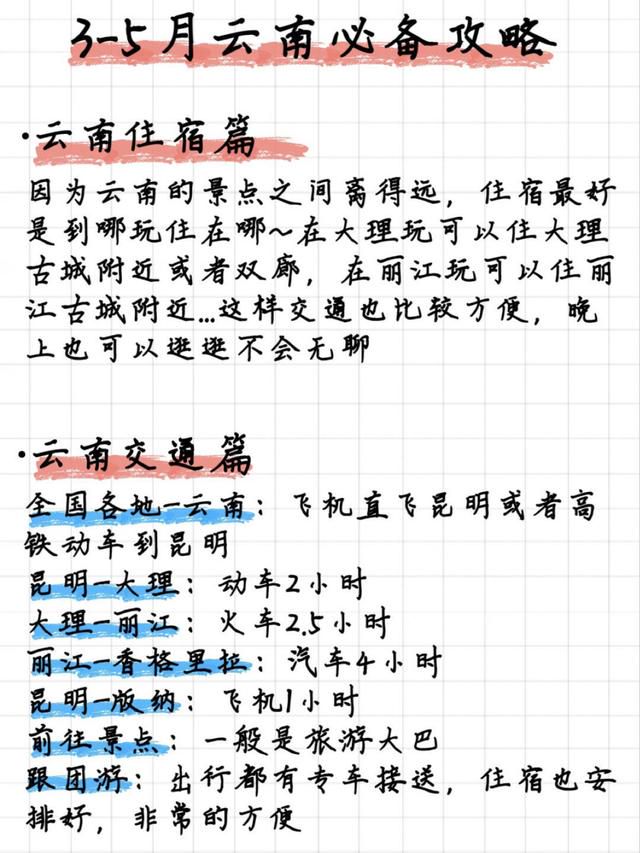 3-5月云南必备攻略
·云南住宿篇
因为云南的景点之间离得远，住宿最好
是到哪玩住在哪~在大理玩可以住大理
古城附近或者双廊，在丽江玩可以住丽
江古城附近...这样交通也比较方便，晚
上也可以逛逛不会无聊
·云南交通篇
全国各地-云南：飞机直飞昆明或者高
铁动车到昆明
昆明-大理：动车2小时
大理-丽江：火车2.5小时
丽江-香格里拉：汽车4小时
昆明-版纳：飞机1小时
前往景点：一般是旅游大巴
跟团游：出行都有专车接送，住宿也安
排好，非常的方便